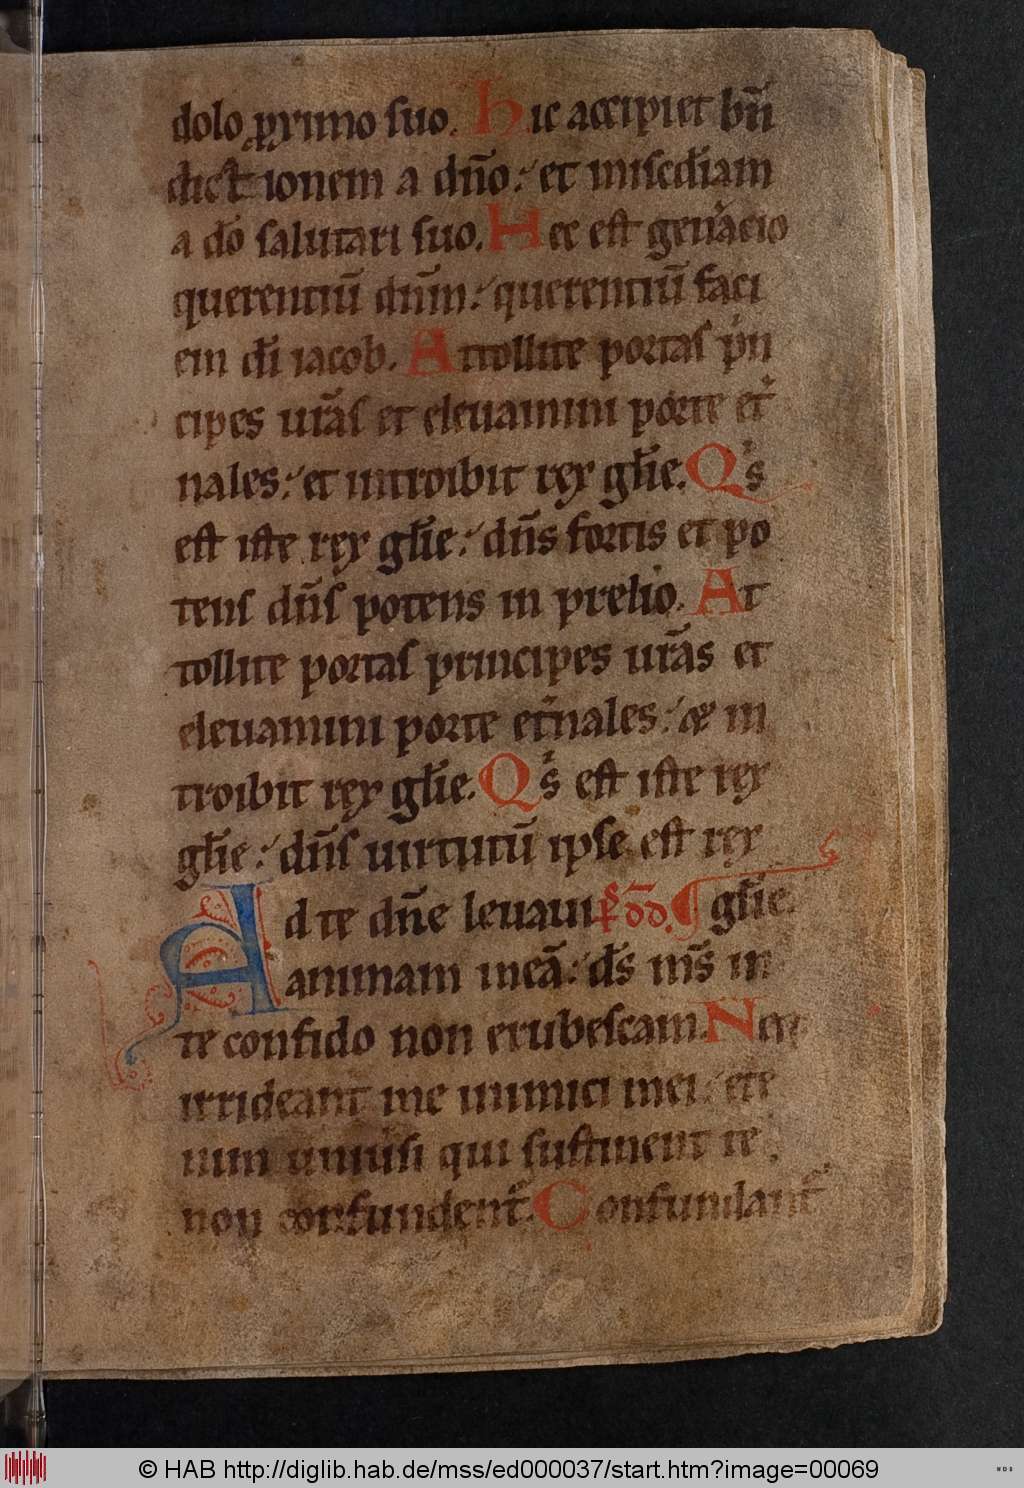 dolo ꝓximo suo. Hic accipiet bn̄
dictionem a dn̄o: et misc̄diam
a dō salutari suo. Hec est gen̄acio
querentiū dn̄m: querentiū faci
em dī iacob. Attollite portas pⁱn
cipes ur̄as et eleuamini porte et̾
nales: et introibit rex gl̄ie. Qⁱs
est iste rex gl̄ie: dn̄s fortis et po
tens dn̄s potens in prelio. At
tollite portas principes ur̄as et
eleuamini porte et̾nales: & in
troibit rex gl̄ie. Qⁱs est iste rex
gl̄ie: dn̄s uirtutū ipse est rex
Ad te dn̄e leuaui p̄s dd̄. ¶ gl̄ie.
animam meā: ds̄ ms̄ in
te confido non erubescam. Neq;
irrideant me inimici mei: ete
nim uniu̾si qui sustinent te
non confundent̾. Confundant̾
© HAB http://diglib.hab.de/mss/ed000037/start.htm?image=00069